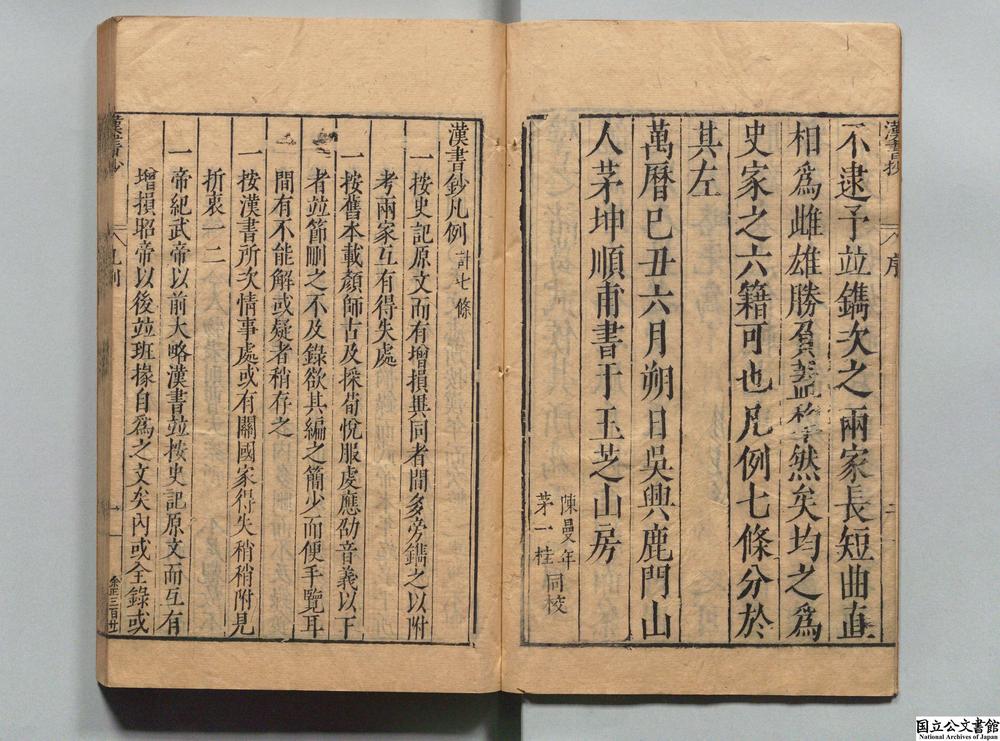 不逮予並鐫次之兩家長短曲直
相爲雌雄勝負蓋犂然矣均之爲
史家之六籍可也凡例七條分於
其左
萬曆己丑六月朔日吳興鹿門山
人茅坤順甫書于玉芝山房
陳曼年
茅一桂同校
漢書鈔
序
漢書鈔凡例計七條
一按史記原文而有增損異同者間多旁鐫之以附
考兩家互有得失處
一按舊本載顏師古及採荀悅服虔應劭音義以下
者並節刪之不及錄欲其編之簡少而便手覽耳
間有不能解或疑者稍存之
一按漢書所次情事處或有關國家得失稍稍附見
折衷一二
一帝紀武帝以前大略漢書並按史記原文而互有
增損昭帝以後並班掾自爲之文矣內或全錄或
漢書鈔
凡例
一
国立公文書館
National Archives of Japan